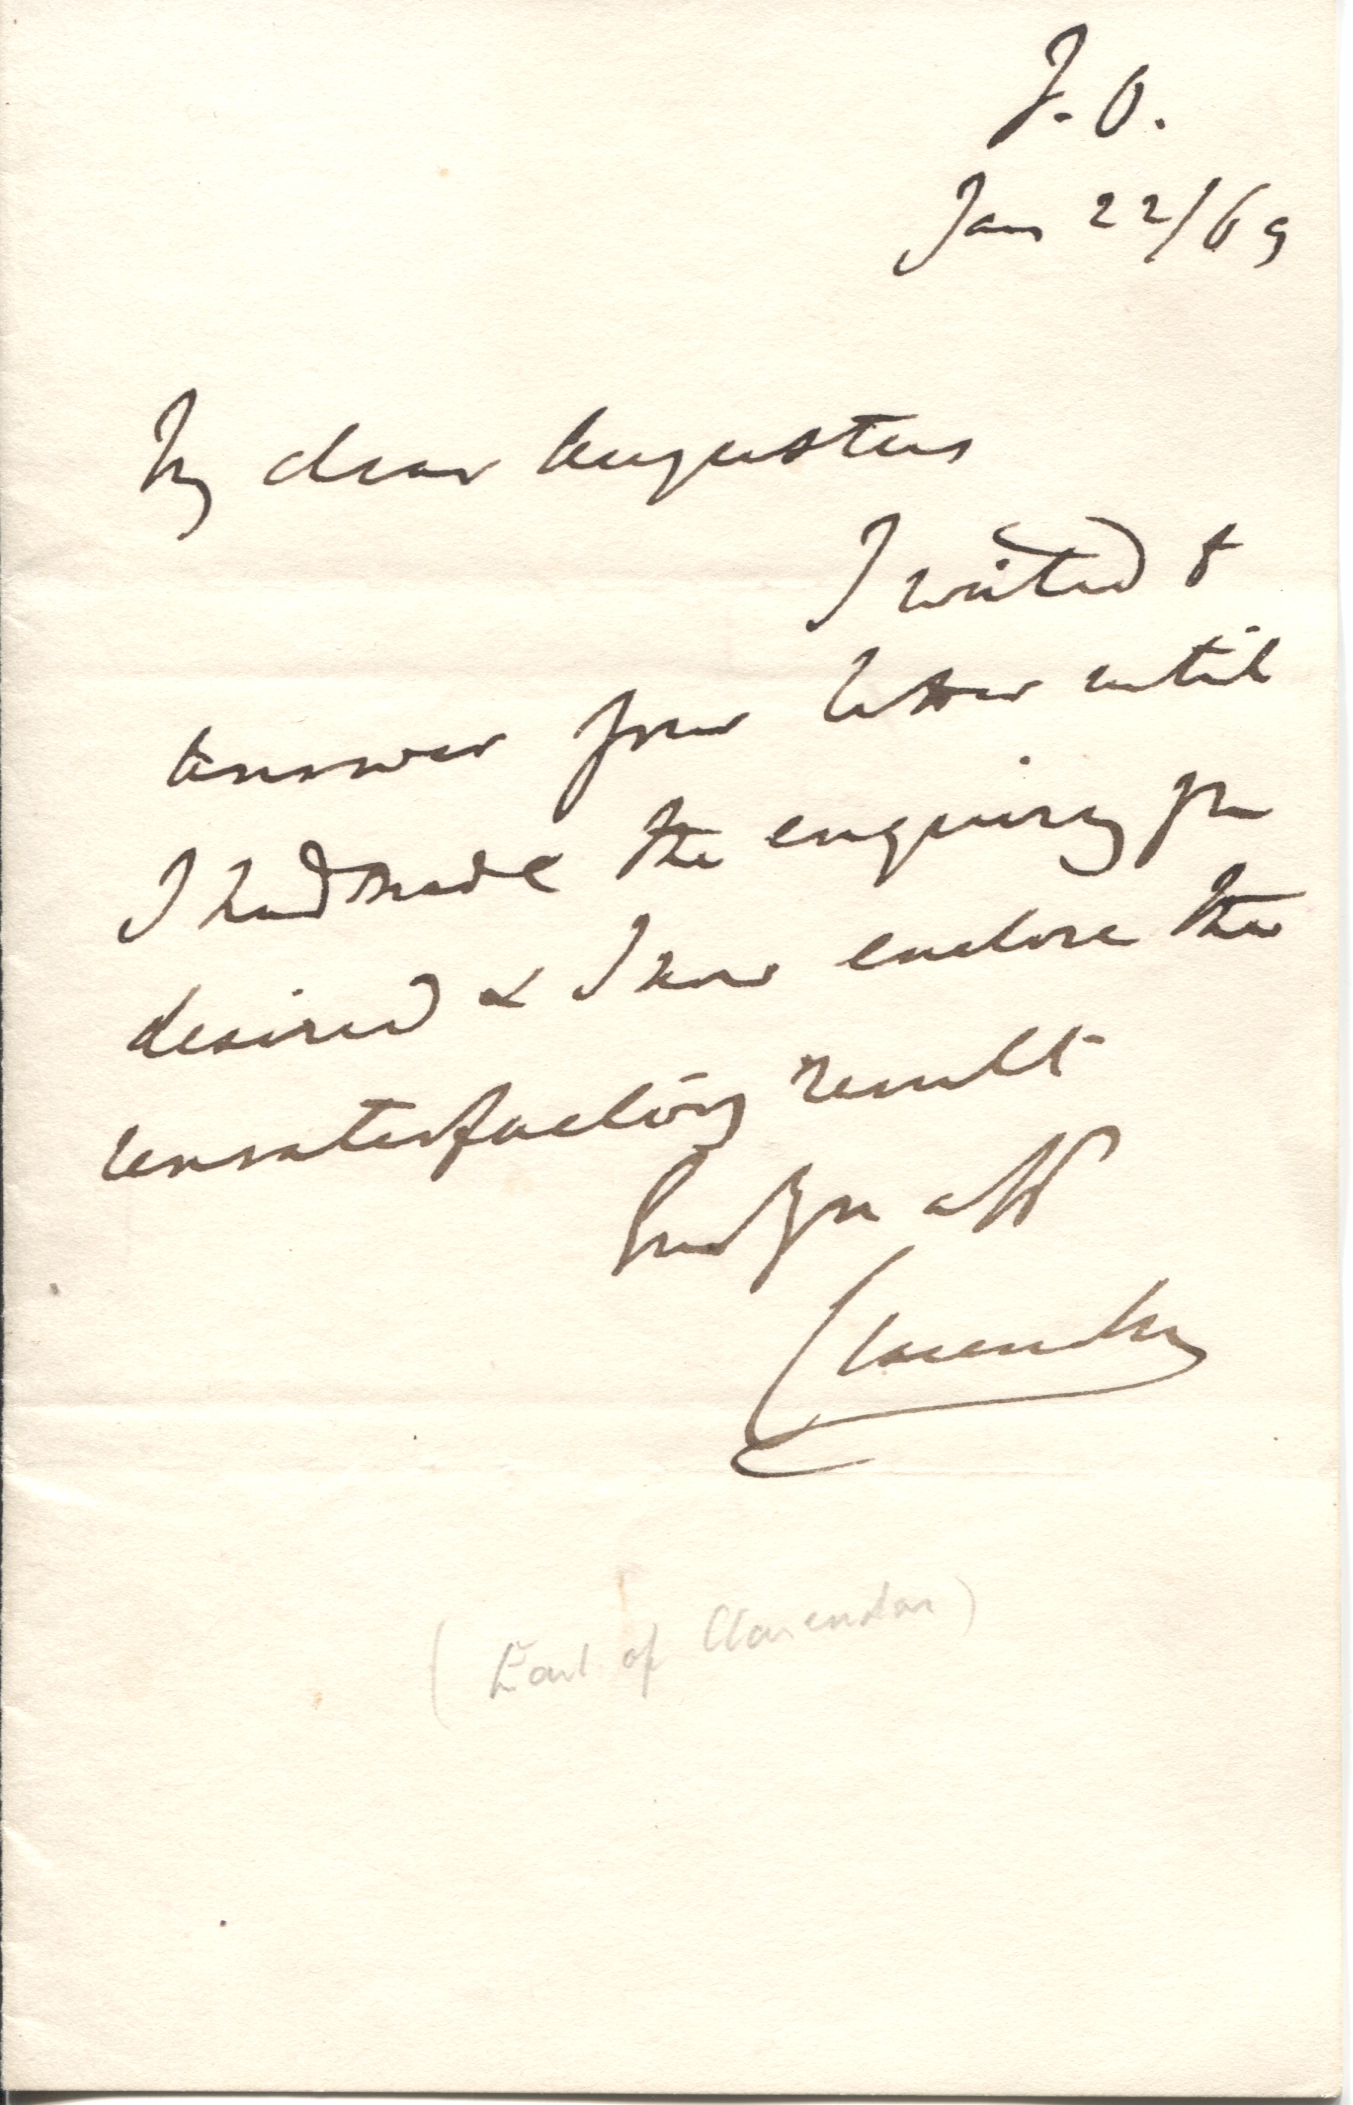 F. O.
Jan 22/69
My dear Augustus
I waited to
answer your letter until
I had made the enquiry you
desired & I now enclose the
unsatisfactory result
aff
Clarendon
(Earl of Clarendon)